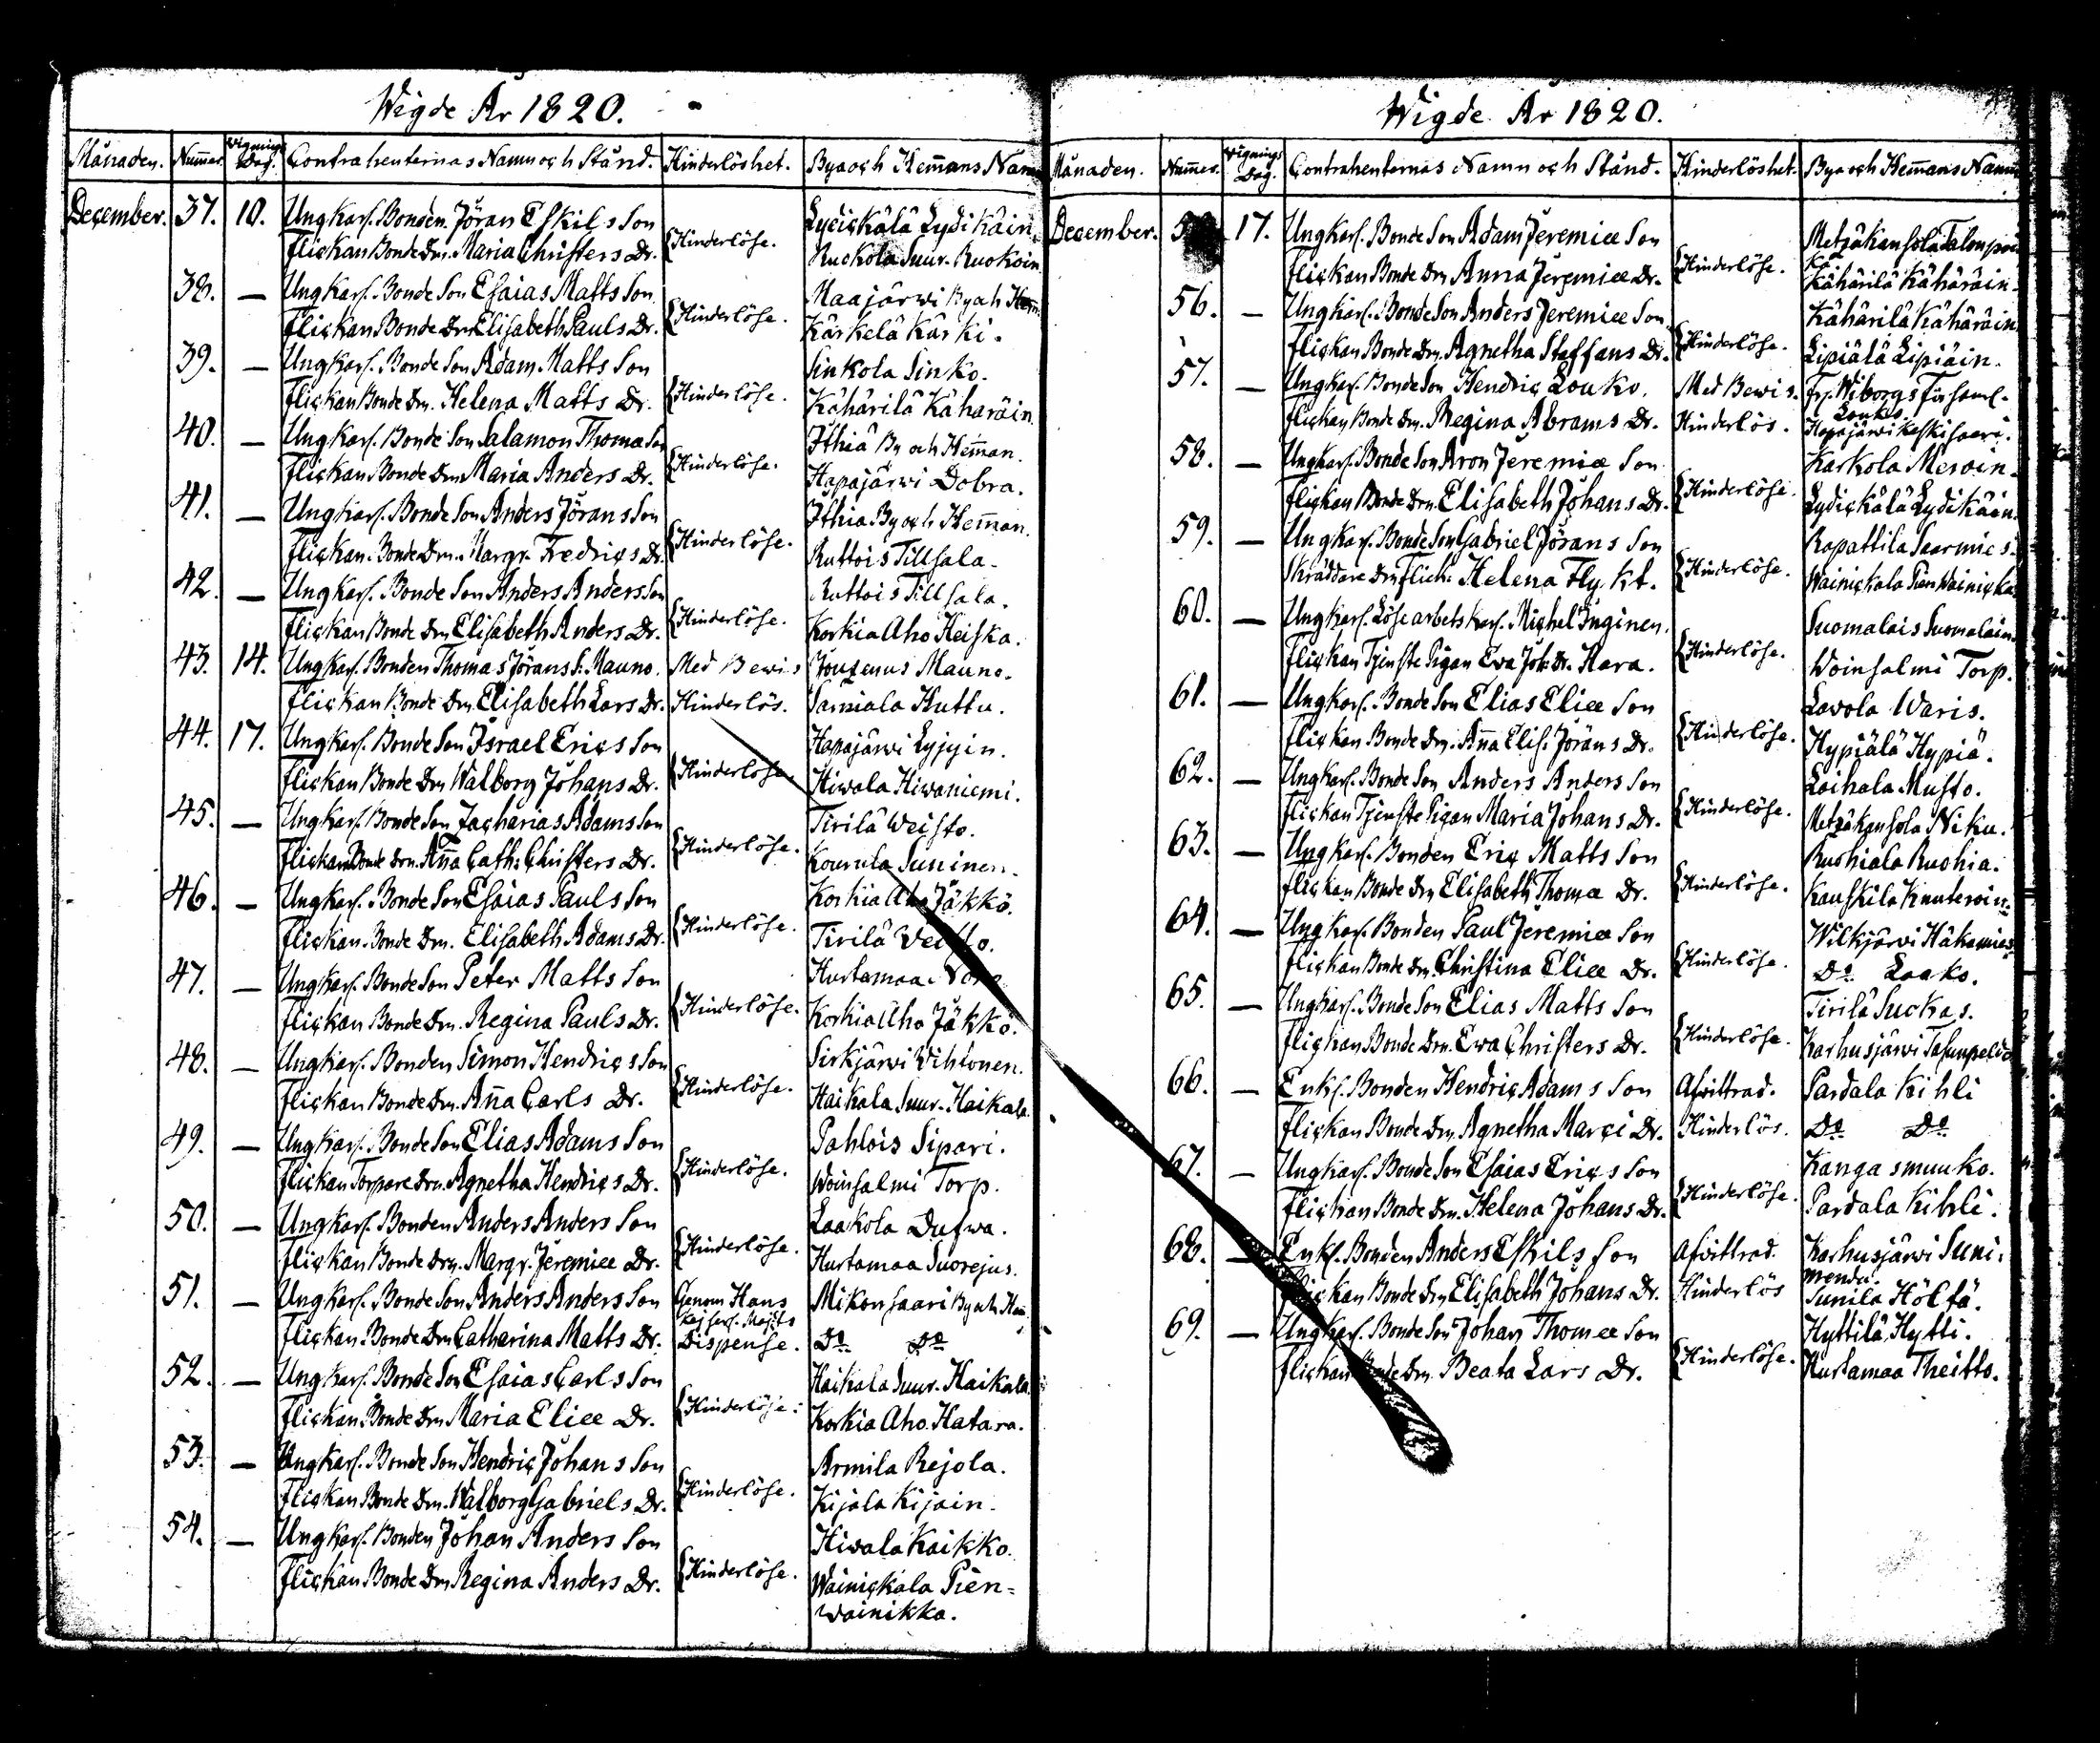 Wigde År 1820.
Månaden. Num̃er. Vignings Dag. Contrahenternas Namn och Stånd. Hinderlöshet. By och Hem̃ans Namn
December. 37. 10. Ungkarl. Bonden Jöran Eskils Son Lydickälä Lydikäin.
flickan Bonde Dr. Maria Christers Dr. Hinderlöse. Ruokola Suur-Ruokoin
38. — Ungkarl. Bonde Son Esaias Matts Son Maajärwi By och Hem̃.
flickan Bonde Dr. Elisabeth Pauls Dr. Hinderlöse. Kärkelä Kärki.
39. — Ungkarl. Bonde Son Adam Matts Son Sinkola Sinko.
flickan Bonde Dr. Helena Matts Dr. Hinderlöse. Kähärilä Käharäin
40. — Ungkarl. Bonde Son Salamon Thomæ Son Ithiä By och Hem̃an.
flickan Bonde Dr. Maria Anders Dr. Hinderlöse. Hapajärwi Dobra.
41. — Ungkarl. Bonde Son Anders Jörans Son Ithia By och Hem̃an.
flickan Bonde Dr. Margr. Fredrics Dr. Hinderlöse. Ruttois Tillsala.
42. — Ungkarl. Bonde Son Anders Anders Son Ruttois Tillsala.
flickan Bonde Dr. Elisabeth Anders Dr. Hinderlöse. Korkia Aho Heiska.
43. 14. Ungkarl. Bonden Thomas Jörans S. Mauno. Med Bewis Joutenus Mauno.
flickan Bonde Dr. Elisabeth Lars Dr. Hinderlös. Sarniala Huttu.
44. 17. Ungkarl. Bonde Son Israel Erics Son Hapajärwi Lyjyin.
flickan Bonde Dr. Walborg Johans Dr. Hinderlöse. Hiwala Hiwaniemi.
45. — Ungkarl. Bonde Son Zacharias Adams Son Tirilä Weisto.
flickan Bonde Dr. An̄a Cath: Christers Dr. Hinderlöse. Kourula Suninen.
46. — Ungkarl. Bonde Son Esaias Pauls Son Korkia Aho Jäkkö.
flickan Bonde Dr. Elisabeth Adams Dr. Hinderlöse. Tirilä Weisto.
47. — Ungkarl. Bonde Son Peter Matts Son Hurtamaa
flickan Bonde Dr. Regina Pauls Dr. Hinderlöse. Korkia Aho Jäkkö.
48. — Ungkarl. Bonden Simon Hendrics Son Sirkjärwi Wihtonen.
flickan Bonde Dr. An̄a Carls Dr. Hinderlöse. Haikala Suur-Haikala.
49. — Ungkarl. Bonde Son Elias Adams Son Pahlois Sipari.
flickan Torpare Dr. Agnetha Hendrics Dr. Hinderlöse. Woinsalmi Torp.
50. — Ungkarl. Bonden Anders Anders Son Laakola Dufwa.
flickan Bonde Dr. Margr. Jeremiæ Dr. Hinderlöse. Hurtamaa Suorejus.
51. — Ungkarl. Bonde Son Anders Anders Son Genom Hans Mikonsaari By och Hem̃
Kejserl. Maj:ts
flickan Bonde Dr. Catharina Matts Dr. Dispense. Do Do
52. — Ungkarl. Bonde Son Esaias Carls Son Haikala Suur-Haikala
flickan Bonde Dr. Maria Eliæ Dr. Hinderlöse. Korkia Aho Hatara.
53. — Ungkarl. Bonde Son Hendric Johans Son Armila Rejola.
flickan Bonde Dr. Walborg Gabriels Dr. Hinderlöse. Kijala Kijain.
54. — Ungkarl. Bonden Johan Anders Son Hiwala Kaikko.
flickan Bonde Dr. Regina Anders Dr. Hinderlöse. Wainickala Pien=
wainikka.
Wigde År 1820.
Månaden. Num̃er. Vignings Dag. Contrahenternas Namn och Stånd. Hinderlöshet. By och Hem̃ans Namn
December. 17. Ungkarl. Bonde Son Adam Jeremiæ Son Metzäkansola Talonpoi
flickan Bonde Dr. Anna Jeremiæ Dr. Hinderlöse. Kähärilä Kähäräin.
56. — Ungkarl. Bonde Son Anders Jeremiæ Son Kähärilä Kähäräin
flickan Bonde Dr. Agnetha Staffans Dr. Hinderlöse. Lipiälä Lipiäin.
57. — Ungkarl. Bonde Son Hendric Louko. Med Bewis. Fr. Wiborgs Församl.
Louko.
flickan Bonde Dr. Regina Abrams Dr. Hinderlös. Hapajärwi Keskisaari.
58. — Ungkarl. Bonde Son Aron Jeremiæ Son Karkola Meroin.
flickan Bonde Dr. Elisabeth Johans Dr. Hinderlöse. Lydickälä Lydikäin.
59. — Ungkarl. Bonde Son Gabriel Jörans Son Rapattila Saarmies.
Skräddare Dr. Flick: Helena Flykt. Hinderlöse. Wainickala Pien Wainicka
60. — Ungkarl. Löse arbets karl. Michel Inginen. Suomalais Suomalain
flickan Tjenste Pigan Ewa Joh: Dr. Kara. Hinderlöse. Woinsalmi Torp.
61. — Ungkarl. Bonde Son Elias Eliæ Son Lavola Waris.
flickan Bonde Dr. An̄a Elis: Jörans Dr. Hinderlöse. Hypiälä Hypiä.
62. — Ungkarl. Bonde Son Anders Anders Son Laihala Musto.
flickan Tjenste Pigan Maria Johans Dr. Hinderlöse. Metzäkansola Niku.
63. — Ungkarl. Bonden Eric Matts Son Ruohiala Ruohia.
flickan Bonde Dr. Elisabeth Thomæ Dr. Hinderlöse. Kauskila Knuteroin.
64. — Ungkarl. Bonden Paul Jeremiæ Son Wilkjärwi Häkämies
flickan Bonde Dr. Christina Eliæ Dr. Hinderlöse. Do Laako.
65. — Ungkarl. Bonde Son Elias Matts Son Tirilä Suckas.
flickan Bonde Dr. Ewa Christers Dr. Hinderlöse. Karhusjärwi
66. — Enkl. Bonden Hendric Adams Son Afwittrad. Pardala Kihli
flickan Bonde Dr. Agnetha Marci Dr. Hinderlös. Do Do
67. — Ungkarl. Bonde Son Esaias Erics Son Kanga smuuko.
flickan Bonde Dr. Helena Johans Dr. Hinderlöse. Pardala Kihli.
68. — Enkl. Bonden Anders Eskils Son Afwittrad. Karhusjärwi Suni:
mendu.
flickan Bonde Dr. Elisabeth Johans Dr. Hinderlös Sunila Höltä.
69. — Ungkarl. Bonde Son Johan Thomæ Son Hyttilä Hytti.
flickan Bonde Dr. Beata Lars Dr. Hinderlöse. Hurtamaa Theitto.